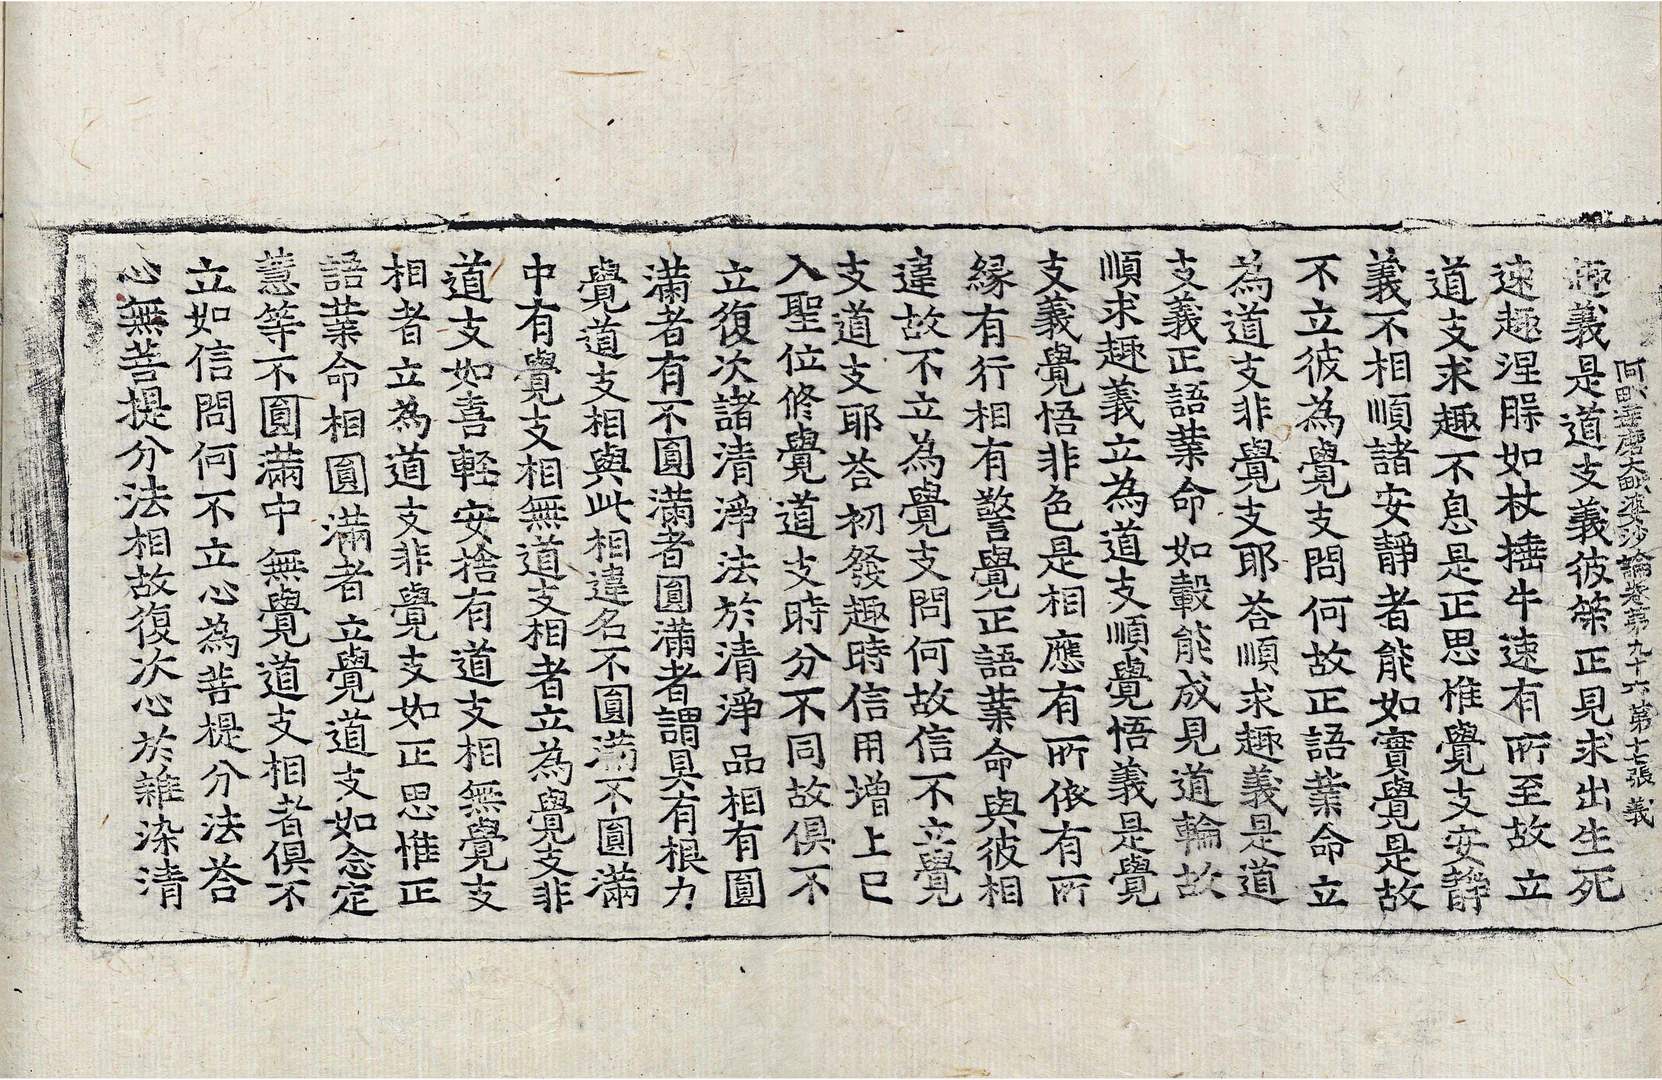 阿毗達磨大毗婆沙論卷第九十六 第十七張 義
趣義是道支義彼築正見求出生死
速趣涅槃如杖捶牛速有所至故立
道支求趣不息是正思惟覺支安靜
義不相順諸安靜者能如實覺是故
不立彼為覺支問何故正語業命立
為道支非覺支耶荅順求趣義是道
支義正語業命如轂能成見道輪故
順求趣義立為道支順覺悟義是覺
支義覺悟非色是相應有所依有所
緣有行相有警覺正語業命與彼相
違故不立為覺支問何故信不立覺
支道支耶荅初發趣時信用增上已
入聖位修覺道支時分不同故俱不
立復次諸清淨法於清淨品相有圓
滿者有不圓滿者圓滿者謂具有根力
覺道支相與此相違名不圓滿不圓滿
中有覺支相無道支相者立為覺支非
道支如喜輕安捨有道支相無覺支
相者立為道支非覺支如正思惟正
語業命相圓滿者立覺道支如念定
慧等不圓滿中無覺道支相者俱不
立如信問何不立心為菩提分法荅
心無菩提分法相故復次心於雜染清